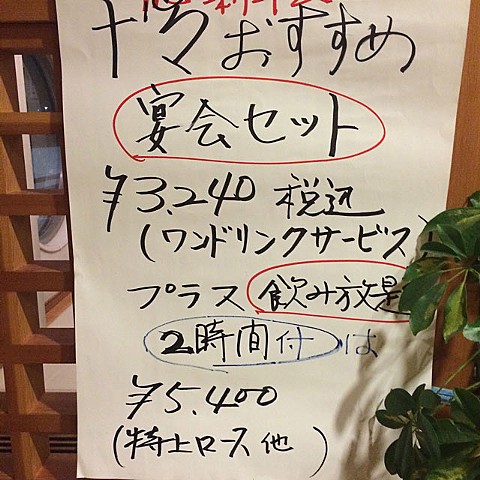 ドマおすすめ
宴会セット
¥3,240 税込
(ワンドリンクサービス)
プラス 飲み放題
2時間付は
¥5,400
(特上ロース他)